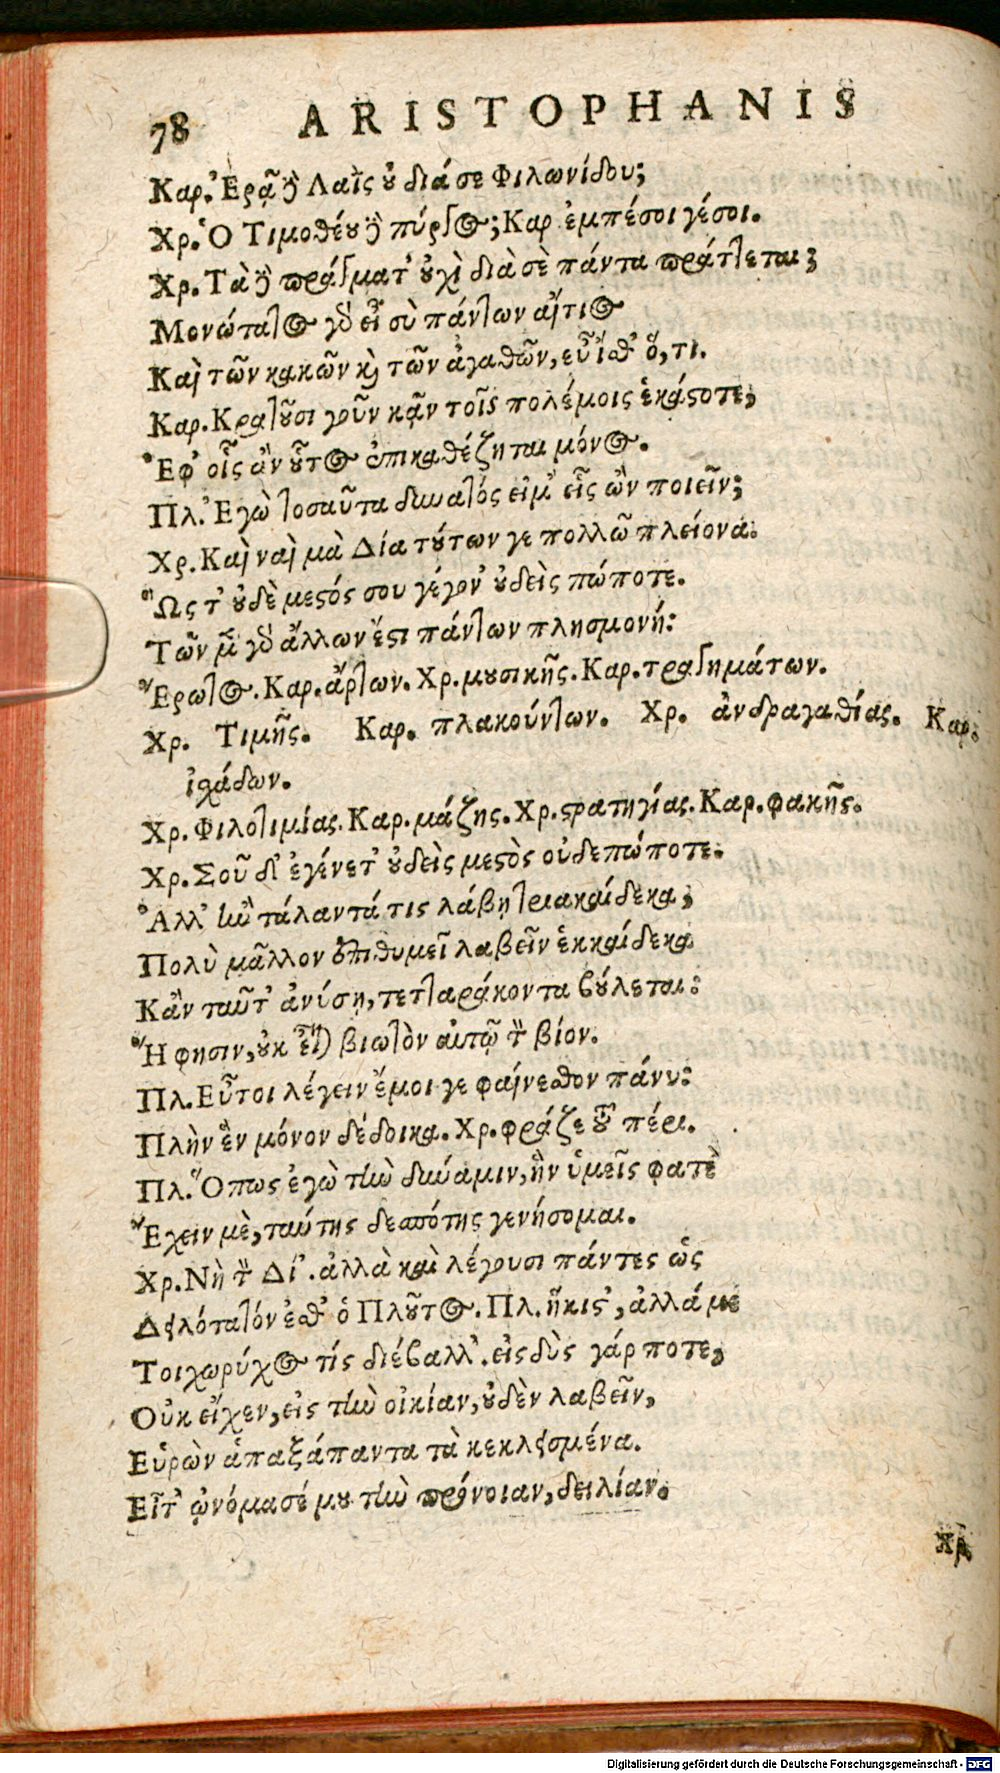 78 ARISTOPHANIS
Καρ. Ἐρᾷ δὲ Λαῒς οὐ διά σε Φιλωνίδου;
Χρ. Ὁ Τιμοθέου δὲ πύργος; Καρ ἐμπέσοι γέ σοι.
Χρ. Τὰ δὲ πράγματ' οὐχὶ διὰ σὲ πάντα πράττεται;
Μονώτατος γὰρ εἶ σὺ πάντων αἴτιος
Καὶ τῶν κακῶν καὶ τῶν ἀγαθῶν, εὖ ἴσθ' ὅ, τι.
Καρ. Κρατοῦσι γοῦν κᾂν τοῖς πολέμοις ἑκάστοτε,
Ἐφ' οἷς ἂν οὗτος ἐπικαθέζηται μόνος.
Πλ. Ἐγὼ τοσαῦτα δυνατός εἰμ' εἷς ὢν ποιεῖν;
Χρ. Καὶ ναὶ μὰ Δία τούτων γε πολλῶ πλείονα.
Ὥς τ' οὐδὲ μεστός σου γέγον' οὐδεὶς πώποτε.
Τῶν μὲν γὰρ ἄλλων ἔστι πάντων πλησμονή:
Ἔρωτος. Καρ. ἄρτων. Χρ. μουσικῆς. Καρ. τραγημάτων.
Χρ. Τιμῆς. Καρ. πλακούντων. Χρ. ἀνδραγαθίας. Καρ.
ἰσχάδων.
Χρ. Φιλοτιμίας. Καρ. μάζης. Χρ. στρατηγίας. Καρ. φακῆς.
Χρ. Σοῦ δ' ἐγένετ' οὐδεὶς μεστὸς οὐδεπώποτε.
Ἀλλ' ἢν τάλαντά τις λάβῃ τριακαίδεκα,
Πολὺ μᾶλλον ἐπιθυμεῖ λαβεῖν ἑκκαίδεκα
Κἂν ταῦτ' ἀνύσῃ, τετταράκοντα βούλεται:
Ἤ φησιν, οὐκ εἶναι βιωτὸν αὐτῷ τὸν βίον.
Πλ. Εὖ τοι λέγειν ἔμοι γε φαίνεσθον πάνυ:
Πλὴν ἓν μόνον δέδοικα. Χρ. φράζε τοῦ πέρι.
Πλ. Ὅπως ἐγὼ τὴν δύναμιν, ἣν ὑμεῖς φατὲ
Ἔχειν μὲ, ταύτης δεσπότης γενήσομαι.
Χρ. Νὴ τὸν Δί'. ἀλλὰ καὶ λέγουσι πάντες ὡς
Δειλότατόν ἐσθ' ὁ Πλοῦτος. Πλ. ἥκιστ', ἀλλά με
Τοιχωρύχος τίς διέβαλλ'. εἰσδὺς γάρ ποτε,
Οὐκ εἶχεν, εἰς τὴν οἰκίαν, οὐδὲν λαβεῖν,
Εὑρὼν ἁπαξάπαντα τὰ κεκλεισμένα.
Εἶτ' ᾠνόμασέ μου τὴν πρόνοιαν, δειλίαν.
Χρ.
Digitalisierung gefördert durch die Deutsche Forschungsgemeinschaft - DFG